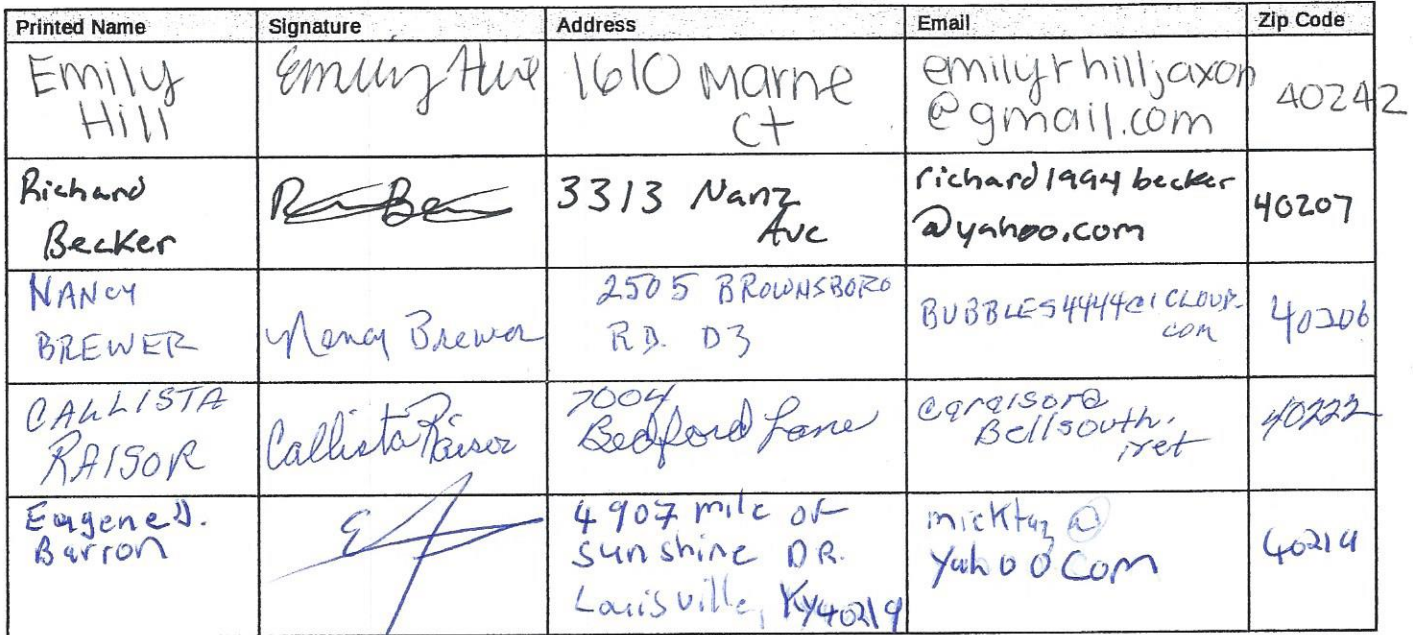 Printed Name Signature Address Email Zip Code
Emily
Hill
Emily Hill
1610 Marne
Ct
emilyrhilljaxon
@gmail.com
40242
Richard
Becker
3313 Nanz
Ave
richard1994becker
@yahoo.com
40207
NANCY
BREWER
Nancy Brewer
2505 BROWNSBORO
RD. D3
BUBBLES4444@ICLOUD.
COM
40206
CALLISTA
RAISOR
Callista Raisor
7004
Bedford Lane
caraisor@
Bellsouth.
net
40222
Eugene D.
Barron
4907 mile of
sunshine DR.
Louisville, KY 40219
micktaz@
Yahoo Com
40219